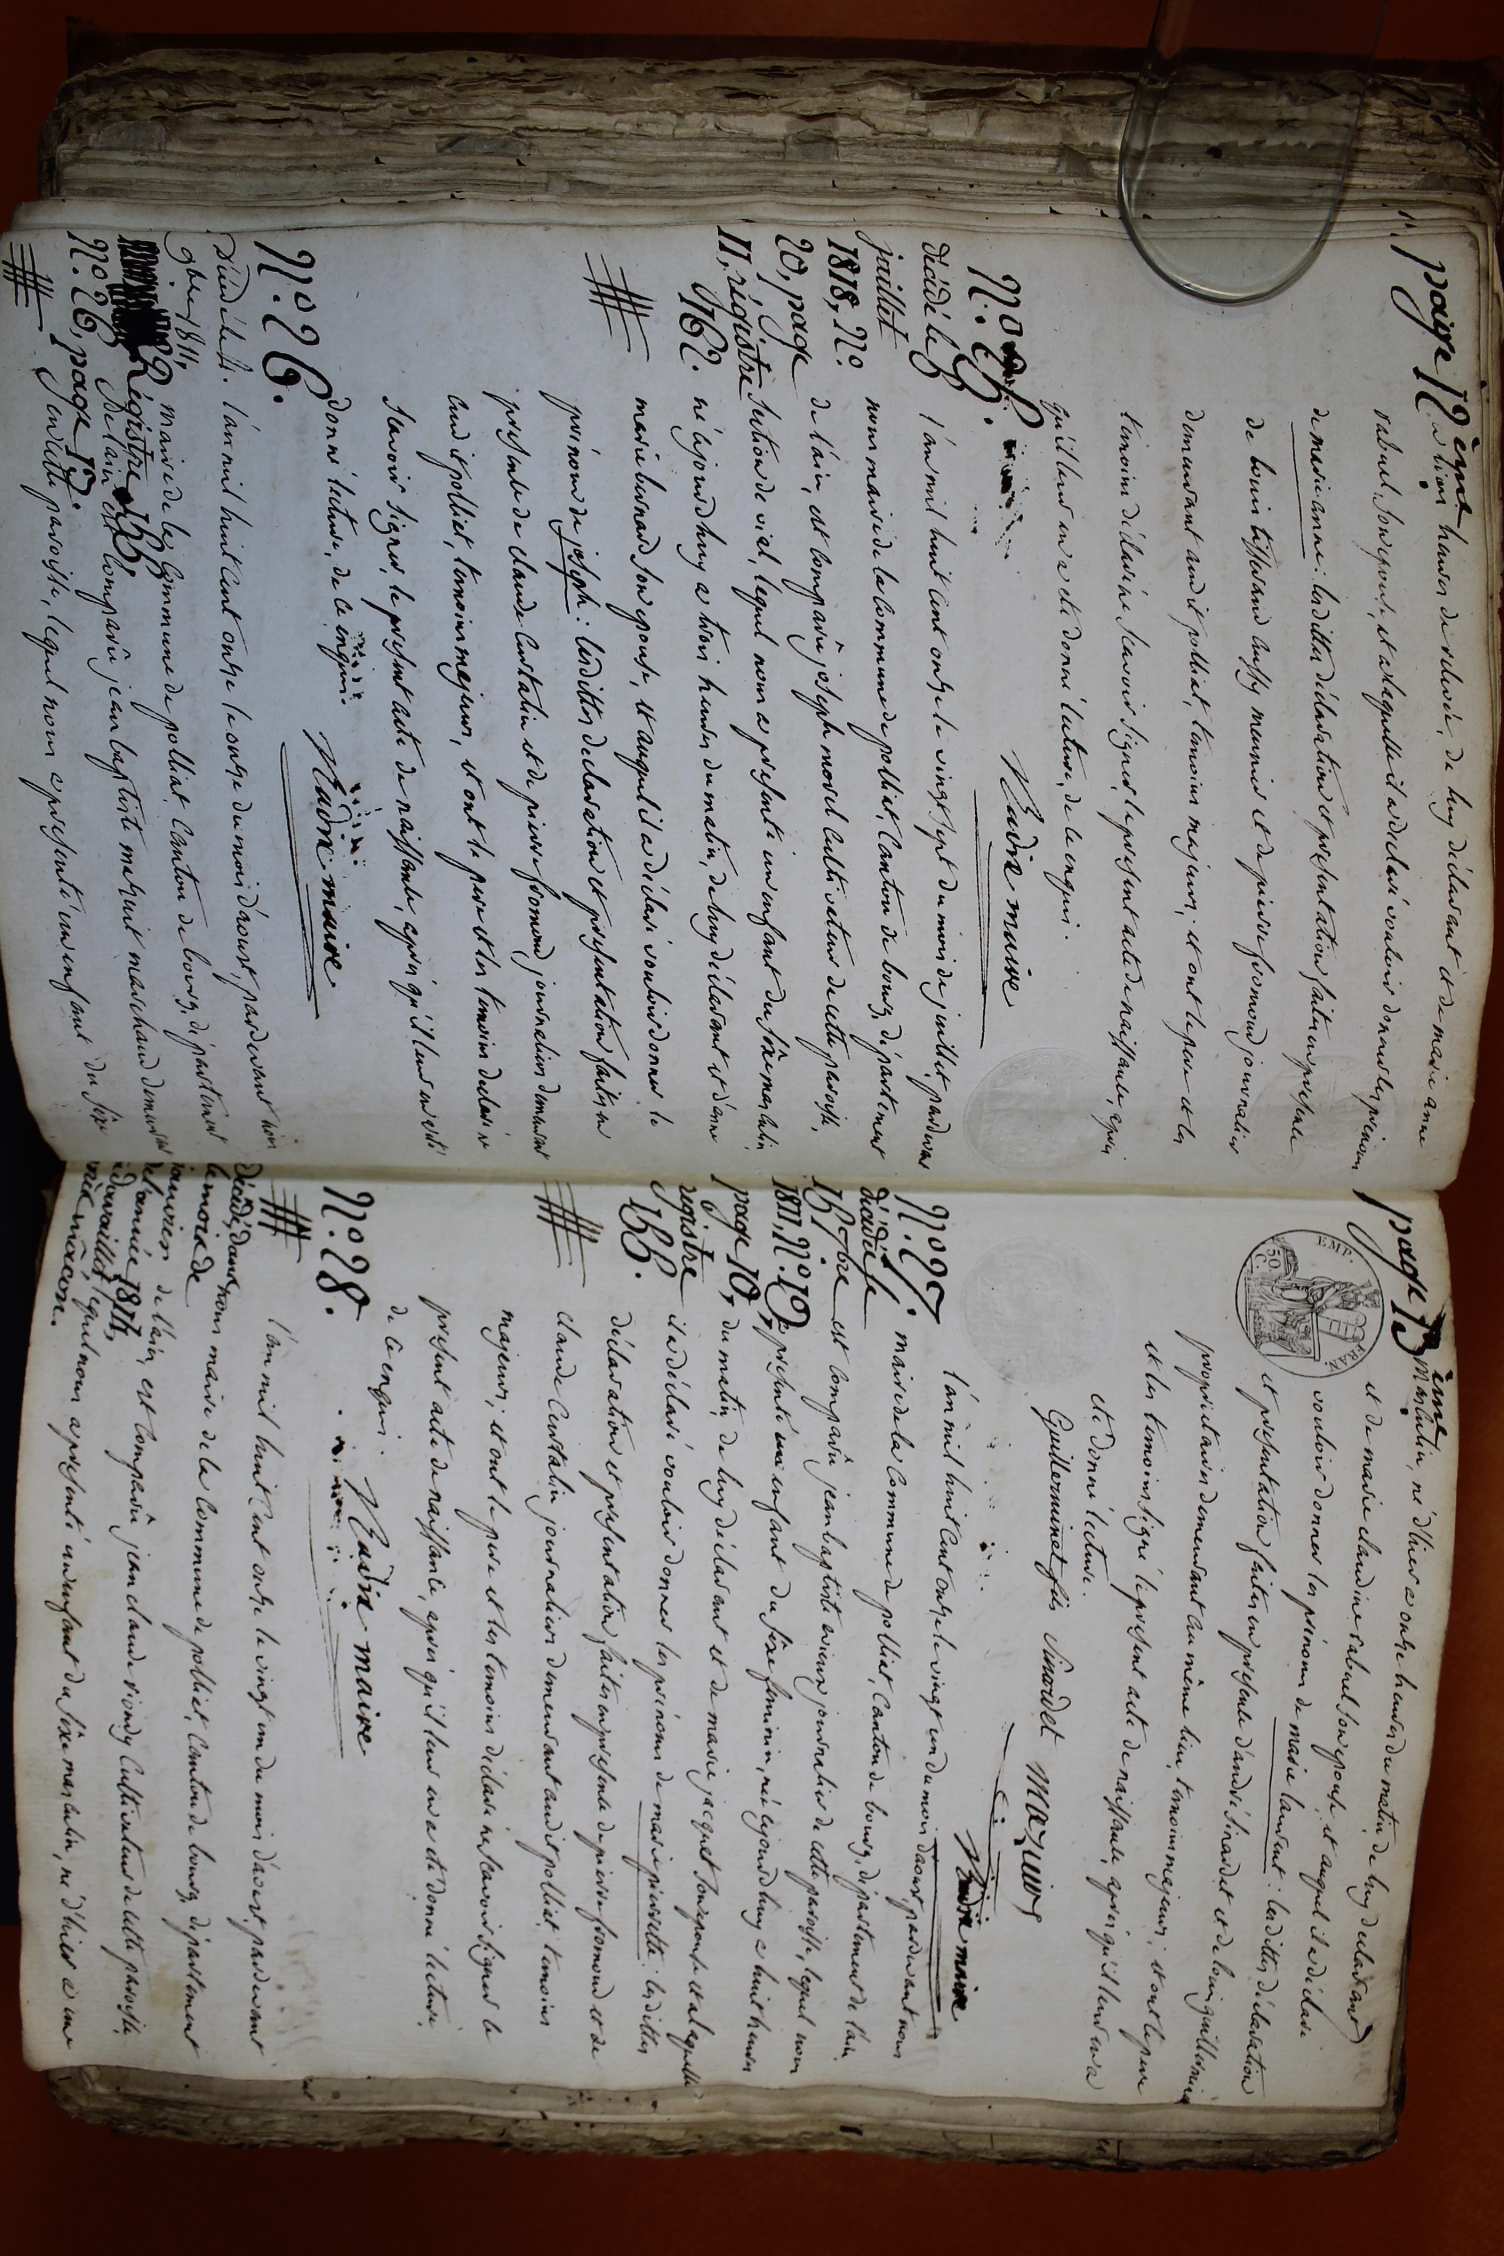 page 12 ème
a trois heures de relevée, de luy déclarant et de marie anne
rabuel son epouse, et a laquelle il a declaré vouloir donner les prenoms
de marie anne : lesdittes déclaration et presentation faites en presence
de louis tisserand aussy meunier et de pierre fromond journalier
demeurant audit polliat, temoins majeurs, et ont le pere et les
temoins déclaré ne scavoir signer le present acte de naissance, apres
qu'il leur en a eté donné lecture, de ce enquis.
Nadre maire
No. 25.
décédé le
juillet
1818, No.
20, page
11, régistre
162.
l'an mil huit cent onze le vingt sept du mois de juillet pardevant
nous maire de la commune de polliat, canton de bourg, département
de l'ain, est comparu joseph morel cultivateur de cette paroisse,
lequel nous a presenté un enfant du sexe masculin
né ajourdhuy a trois heures du matin, de luy déclarant et d'anne
marie bernard son epouse, et auquel il a déclaré vouloir donner le
prénom de joseph : lesdittes declaration et presentation faites en
presence de claude curtalin et de pierre fromond journaliers demeurant
audit polliat, temoins majeurs, et ont le pere et les temoins declaré ne
scavoir signer le present acte de naissance, apres qu'il leur en a eté
donné lecture, de ce enquis.
Nadre maire
No. 26.
9bre 1811,
Régistre 155.
No. 26, page 13.
l'an mil huit cent onze le onze du mois d'aoust, pardevant nous
maire de la commune de polliat canton de bourg, département
de l'ain est comparu jean baptiste marchand demeurant
en cette paroisse, lequel nous a presenté un enfant du sexe
page 13 ème
EMP. FRAN.
50 C.
masculin, né d'hier a onze heures du matin, de luy declarant
et de marie claudine rabuel son epouse, et auquel il a déclaré
vouloir donner les prénoms de marie laurent : lesdittes déclaration
et presentation faites en presence d'andré sinardet et de louis guillerminet
proprietaires demeurant au même lieu, temoins majeurs; et ont le pere
et les temoins signé le present acte de naissance, apres qu'il leur en a
eté donné lecture.
Guillerminet fils Sinardet
Nadre maire
No. 27.
décédée le
15 7bre
1811, No. 19,
page 10,
régistre
155.
l'an mil huit cent onze le vingt un du mois d'aoust, pardevant nous
maire de la commune de polliat, canton de bourg, département de l'ain,
est comparu jean baptiste journalier de cette paroisse, lequel nous
a presenté un enfant du sexe feminin, née ajourdhuy a huit heures
du matin, de luy déclarant et de marie jacquet son epouse et a laquelle
il a déclaré vouloir donner les prénoms de marie pierrette : lesdittes
déclaration et presentation faites en presence de pierre fromond et de
claude curtalin journaliers demeurant audit polliat temoins
majeurs; et ont le pere et les temoins déclaré ne scavoir signer le
present acte de naissance, apres qu'il leur en a eté donné lecture.
de ce enquis.
Nadre maire
No. 28.
décédé, dans
le mois de
janvier
de l'année 1814,
l'an mil huit cent onze le vingt un du mois d'aoust, pardevant
nous maire de la commune de polliat, canton de bourg, département
de l'ain, est comparu jean claude cultivateur de cette paroisse,
lequel nous a presenté un enfant du sexe masculin, né d'hier a une